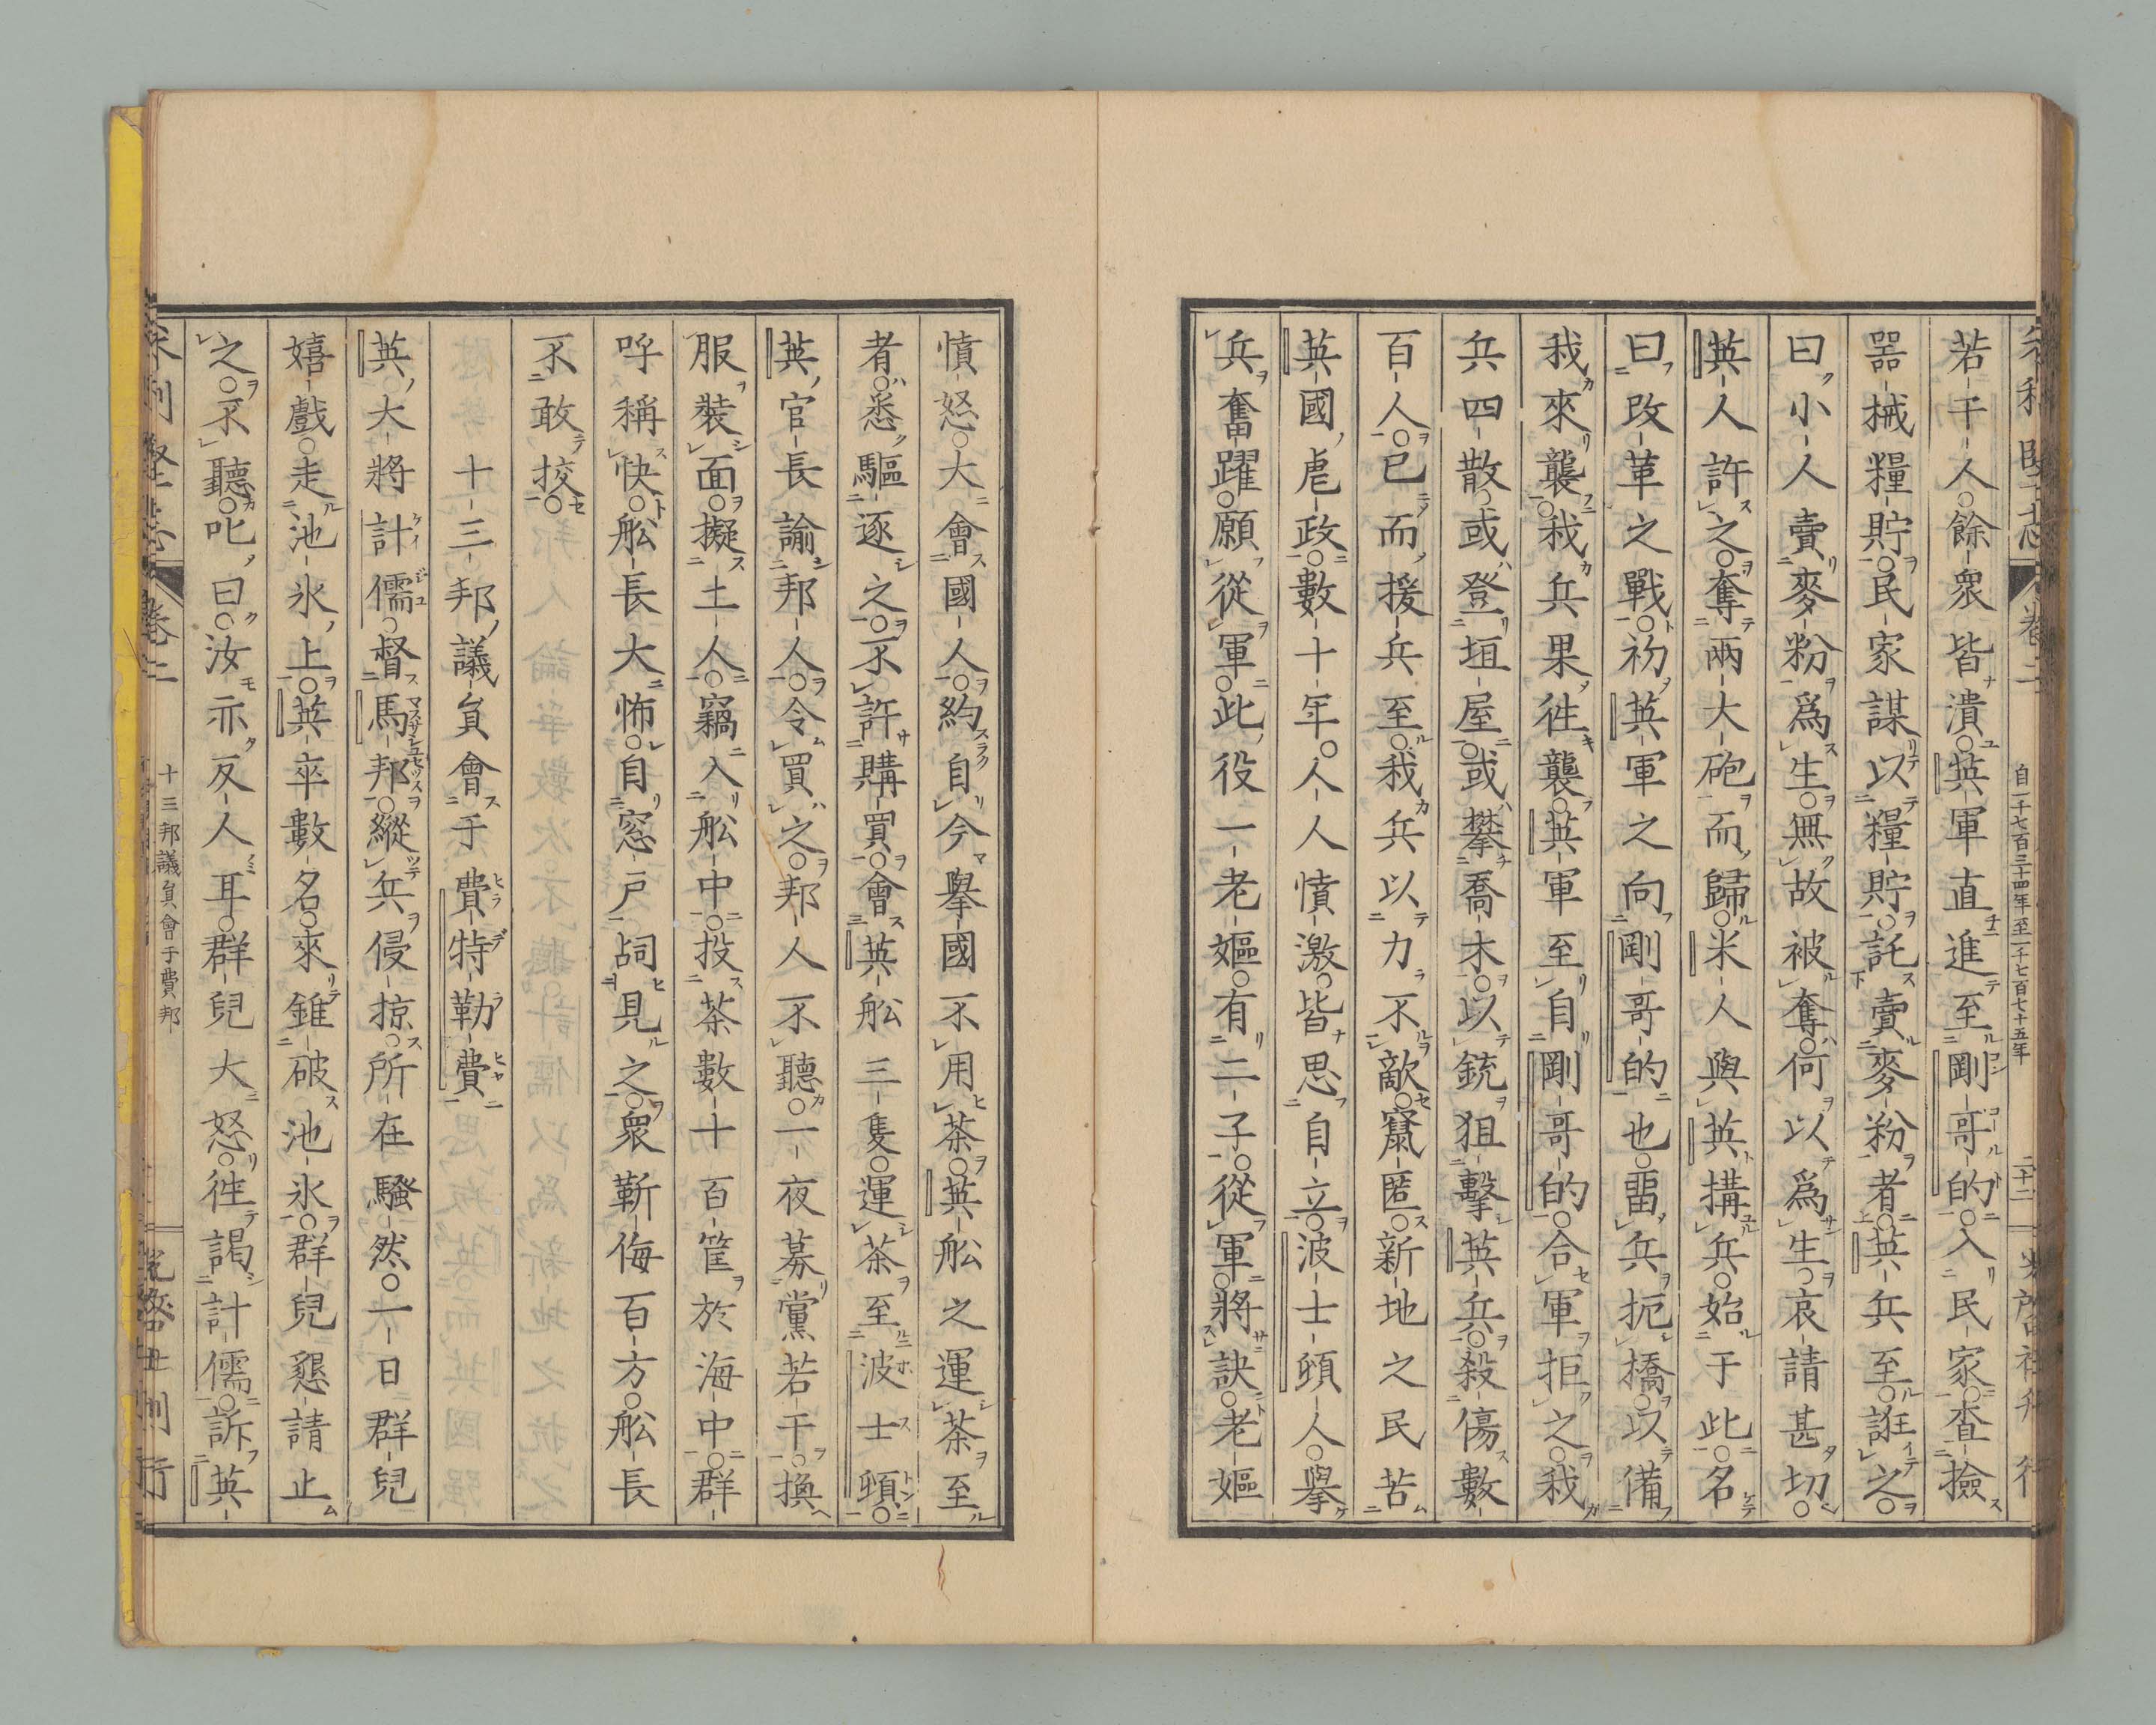 卷二 自一千七百三十四年至一千七百七十五年 二十二
若干人。餘衆皆潰。英軍直進至剛哥的。入民家。查撿
器械糧貯。民家謀以糧貯。託賣麥粉者。英兵至。誑之。
曰小人賣麥粉爲生。無故被奪。何以爲生。哀請甚切。
英人許之。奪兩大砲而歸。米人與英搆兵。始于此。名
曰改革之戰。初英軍之向剛哥的也。畱兵扼橋。以備
我來襲。我兵果徃襲。英軍至自剛哥的。合軍拒之。我
兵四散。或登垣屋。或攀喬木。以銃狙擊英兵。殺傷數
百人。已而援兵至。我兵以力不敵。竄匿。新地之民苦
英國虐政。數十年。人人憤激。皆思自立。波士頓人。擧
兵奮躍。願從軍。此役一老嫗。有二子。從軍。將訣。老嫗
憤怒。大會國人。約自今擧國不用茶。英舩之運茶至
者。悉驅逐之。不許購買。會英舩三隻。運茶至波士頓。
英官長諭邦人。令買之。邦人不聽。一夜募黨若干。換
服裝面。擬土人。竊入舩中。投茶數十百筐於海中。群
呼稱快。舩長大怖。自窓戸詞見之。衆靳侮百方。舩長
不敢挍。
十三邦議負會于費特勒費
英大將計儒。督馬邦。縱兵侵掠。所在騷然。一日群兒
嬉戲。走池氷上。英卒數名。來錐破池氷。群兒懇請止
之。不聽。叱曰。汝亦叛人耳。群兒大怒。徃謁計儒。訴英
卷二 十三邦議負會于費邦